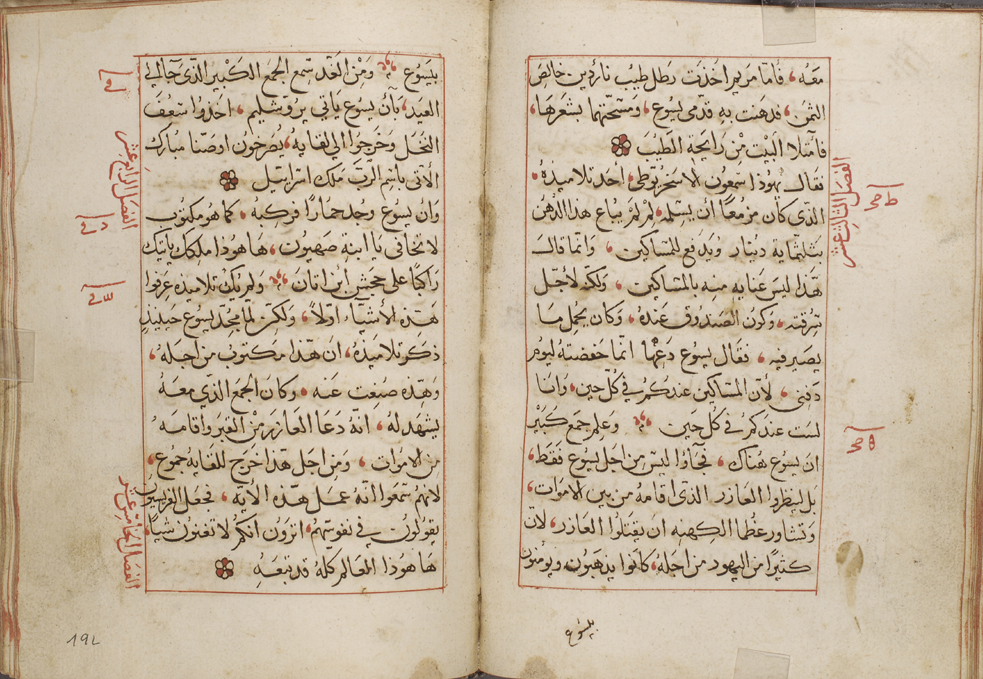 معه، فاما مريم اخذت رطل طيب ناردين خالص
الثمن، فدهنت به قدمي يسوع، ومسحتهما بشعرها،
فامتلا البيت من رايحة الطيب
فقال يهوذا سمعون الاسخريوطي، احد تلاميذه،
الذي كان مزمعا ان يسلمه، لم لم يباع هذا الدهن
بثلثماية دينار ويدفع للمساكين، وانما قال
هذا ليس عنايه منه بالمساكين، ولكنه لاجل
سرقته، وكون الصندوق عنده، وكان يحمل ما
يصير فيه، فقال يسوع دعها انما حفضته ليوم
دفني، لان المساكين عندكم في كل حين، وانا
لست عندكم في كل حين وعلم جمع كبير
ان يسوع هناك، فجاوا ليس من اجل يسوع فقط،
بل لينظروا العازر الذي اقامه من بين الاموات،
وتشاور عظما الكهنه ان يقتلوا العازر، لان
كثيرا من اليهود من اجله، كانوا يذهبون ويومنون
بيسوع
الفصل الثالث عشر
بيسوع ومن الغد سمع الجمع الكبير الذي جا الي
العيد، بان يسوع ياتي يروشليم، اخذوا سعف
النخل وخرجوا الي لقايه، يصرخون اوصنا مبارك
الاتي باسم الرب ملك اسراييل
وان يسوع وجد حمارا فركبه، كما هو مكتوب
لا تخافي يا ابنة صهيون، ها هوذا ملكك ياتيك
راكبا على جحيش ابن اتان ولم يكن تلاميذه عرفوا
هذه الاشياء اولا، ولكن لما مجد يسوع حينيذ
ذكر تلاميذه، ان هذا مكتوب من اجله،
وهذه صنعت عنه، وكان الجمع الذي معه
يشهد له، انه دعا العازر من القبر واقامه
من الاموات، ومن اجل هذا خرج للقايه جموع،
لانهم سمعوا انه عمل هذه الايه، فجعل الفريسيون
يقولون في نفوسهم، اترون انكم لا تغنون شيا،
ها هوذا العالم كله قد تبعه
الفصل الرابع عشر
الفصل الخامس عشر